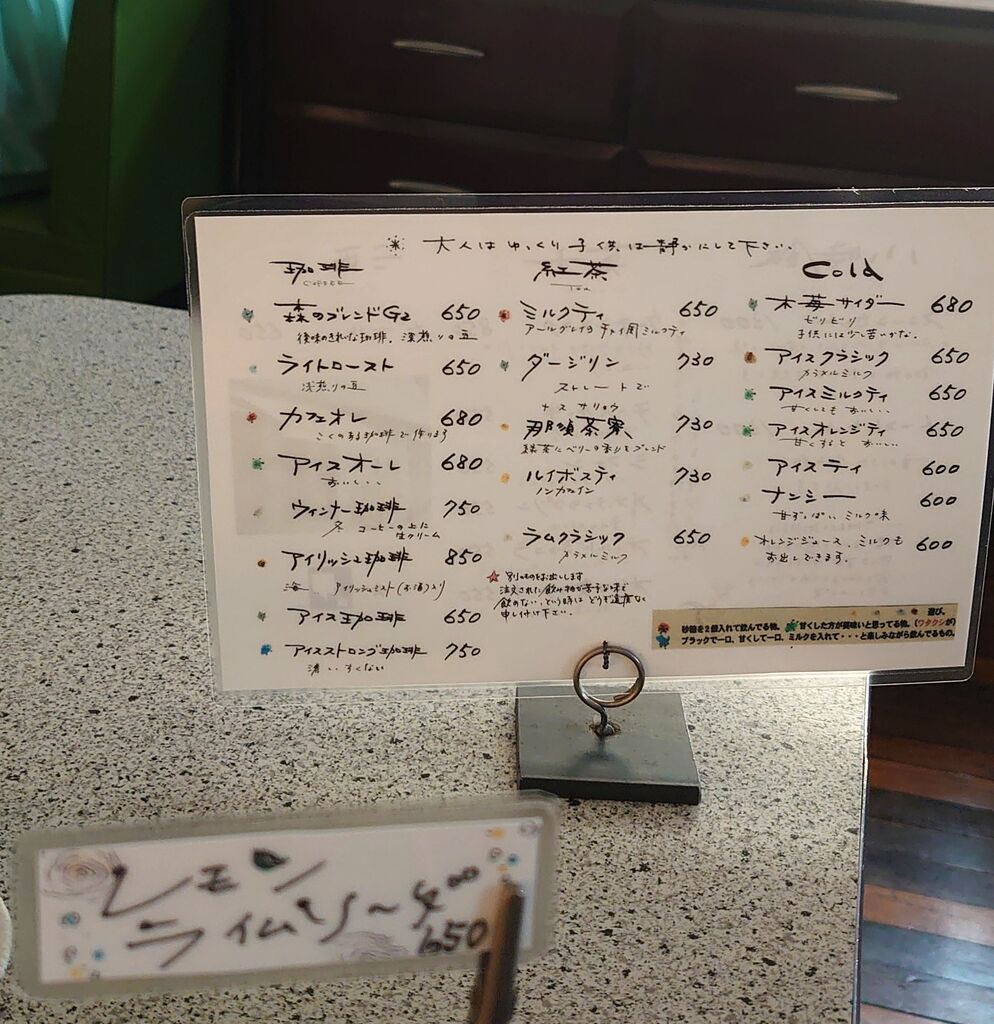 ※ 大人はゆっくり子供は静かにして下さい.
珈琲
COFFEE
森のブレンドG2 650
後味のきれいな珈琲. 深煎りの豆
ライトロースト 650
浅煎りの豆
カフェオレ 680
こくのある珈琲で作ります
アイスオーレ 680
おいしい..
ウィンナー珈琲 750
冬 コーヒーの上に
生クリーム
アイリッシュ珈琲 850
アイリッシュミスト(お酒)入り
アイス珈琲 650
アイスストロング珈琲 750
濃い. すくない
紅茶
Tea
ミルクティ 650
アールグレイ チャイ用ミルクティ
ダージリン 730
ストレートで
ナス サリョウ
那須茶寮 730
緑茶にベリーの香りをブレンド
ルイボスティ 730
ノンカフェイン
ラムクラシック 650
カラメルミルク
☆ 別のものをお出しします
注文された飲み物が苦手な味で
飲めない、という時は どうぞ遠慮なく
申し付け下さい.
Cold
木苺サイダー 680
ピリピリ
子供には少し苦いかな.
アイスクラシック 650
カラメルミルク
アイスミルクティ 650
甘くしても おいしい...
アイスオレンジティ 650
甘くすると おいしい...
アイスティ 600
ナンシー 600
甘ずっぱい ミルク味
オレンジジュース、ミルクも 600
お出しできます.
遊び。
砂糖を2個入れて飲んでる物。甘くした方が美味いと思ってる物。(ワタクシが)
ブラックで一口、甘くして一口、ミルクを入れて・・・と楽しみながら飲んでるもの。
レモン
ライム
650